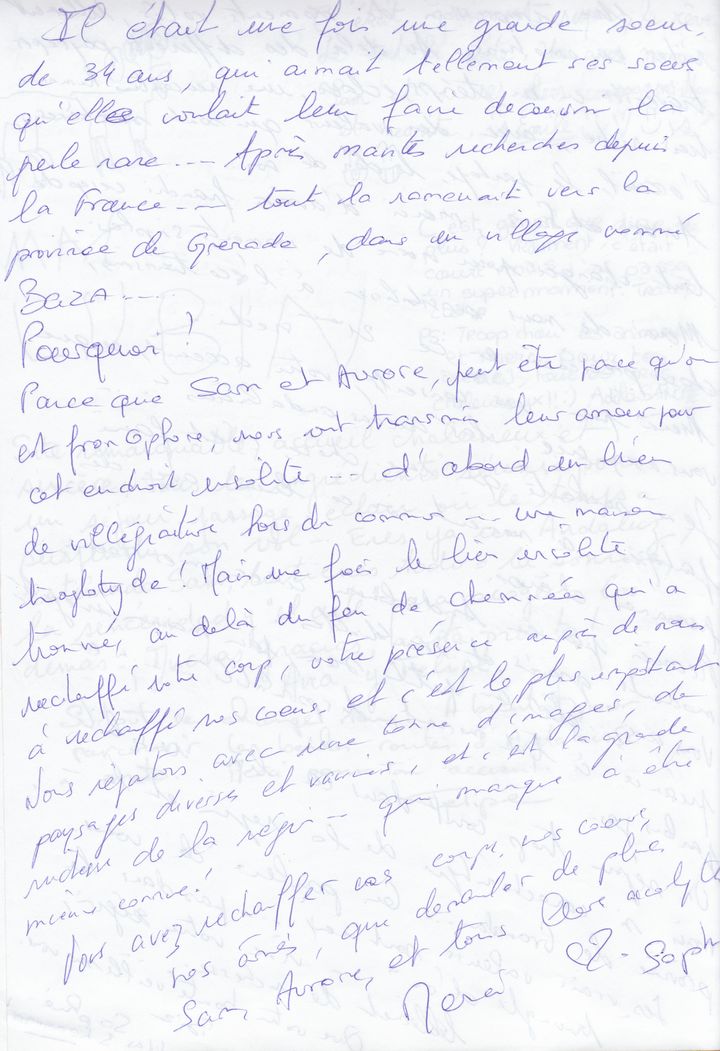 Il était une fois une grande soeur,
de 34 ans, qui aimait tellement ses soeurs
qu'elle voulait leur faire découvrir la
perle rare... Après maintes recherches depuis
la France... tout la ramenait vers la
province de Grenade, dans un village nommé
BAZA....
Pourquoi ?
Parce que Sam et Aurore, peut être parce qu'on
est francophone, nous ont transmis leur amour pour
cet endroit insolite... d'abord un lieu
de villégiature hors du commun... une maison
troglotyde ! Mais une fois le lieu insolite
trouvé, au delà du feu de cheminée qui a
rechaffé notre corp, votre présence auprès de nous
à rechaffé nos coeurs et c'est le plus important
Nous repartons avec une tonne d'images, de
paysages diverses et varriés, et c'est la grande
richesse de la région... qui manque à être
mieux connue !
Vous avez rechaffer nos corps, nos coeurs,
nos âmes, que demander de plus
Sam, Aurore, et tous leurs acolytes
Merci Soph